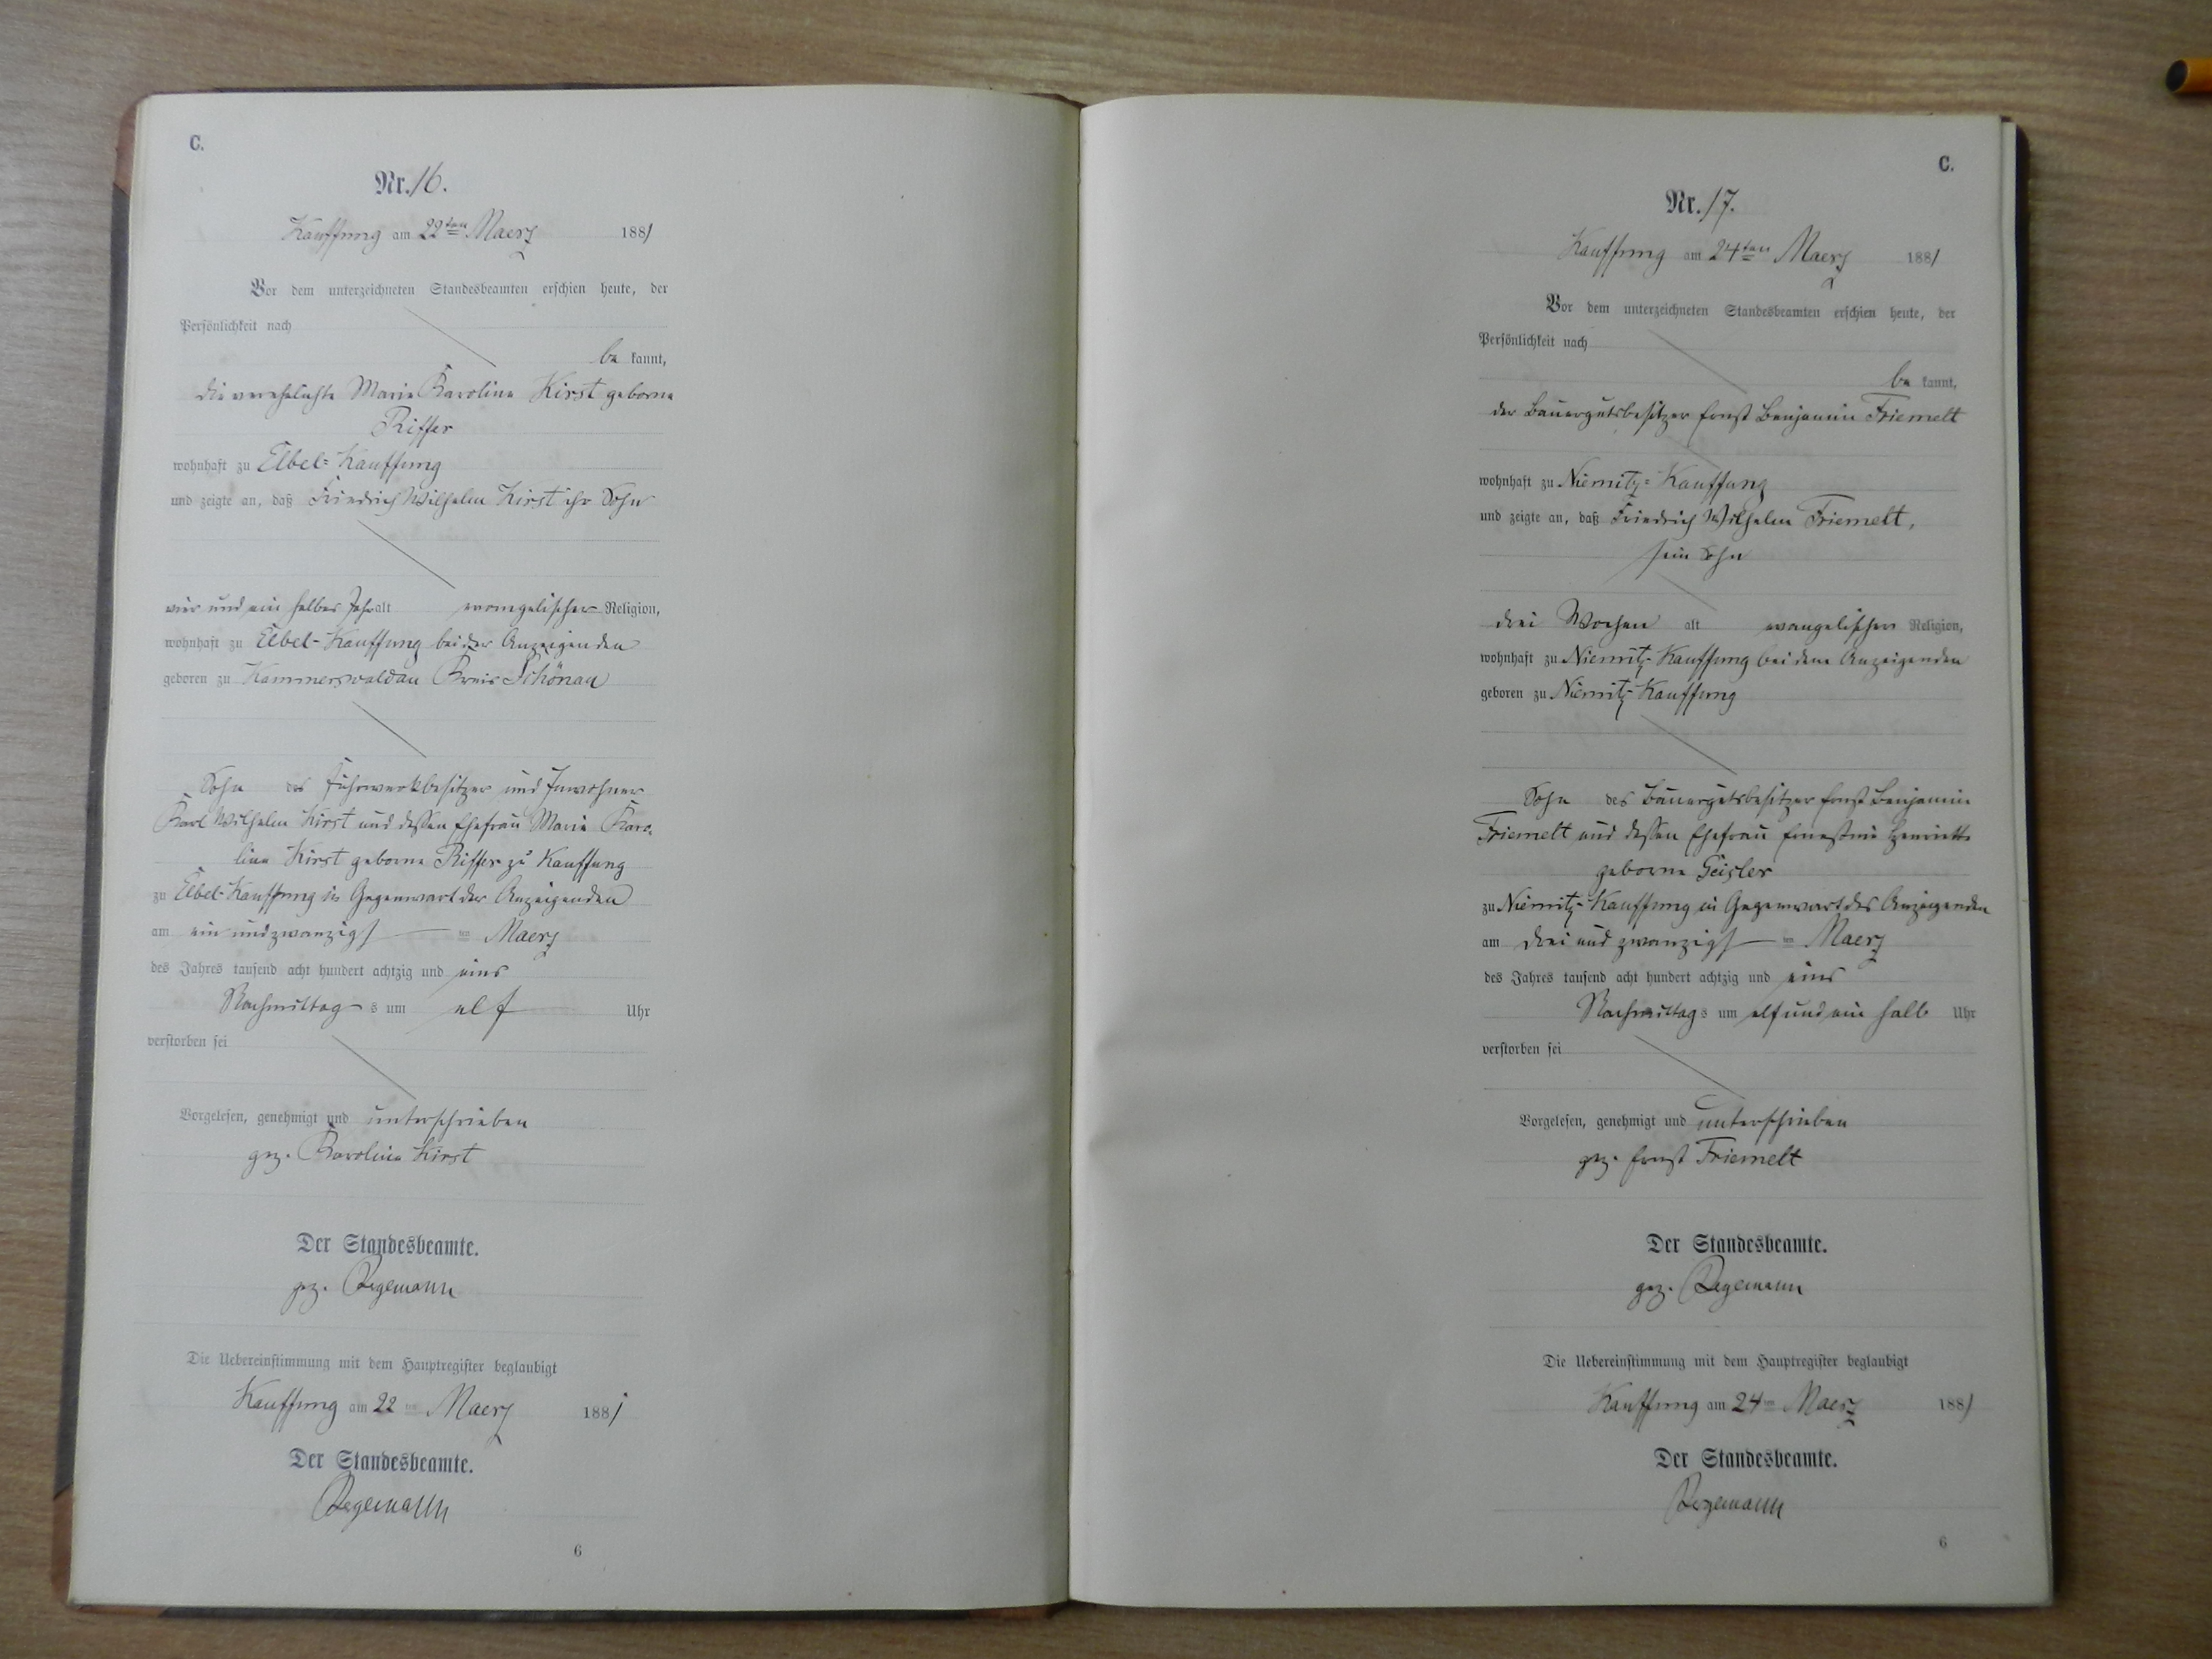 C.
Nr. 16.
Kauffung am 22ten Maerz 1881
Vor dem unterzeichneten Standesbeamten erschien heute, der
Persönlichkeit nach
be kannt,
die verehelichte Marie Karoline Kirst geborne
Riffer
wohnhaft zu Elbel-Kauffung
und zeigte an, daß Friedrich Wilhelm Kirst ihr Sohn
vier und ein halbes Jahr alt evangelischer Religion,
wohnhaft zu Elbel-Kauffung bei der Anzeigenden
geboren zu Kammerswaldau Kreis Schönau
Sohn des Fuhrwerkbesitzer und Inwohner
Karl Wilhelm Kirst und dessen Ehefrau Marie Karo-
line Kirst geborne Riffer zu Kauffung
zu Elbel-Kauffung in Gegenwart der Anzeigenden
am ein und zwanzigsten Maerz
des Jahres tausend acht hundert achtzig und eins
Nachmittags um elf Uhr
verstorben sei
Vorgelesen, genehmigt und unterschrieben
gez. Karoline Kirst
Der Standesbeamte.
gez. Degemann
Die Uebereinstimmung mit dem Hauptregister beglaubigt
Kauffung am 22ten Maerz 1881
Der Standesbeamte.
Degemann
6
C.
Nr. 17.
Kauffung am 24ten Maerz 1881
Vor dem unterzeichneten Standesbeamten erschien heute, der
Persönlichkeit nach
be kannt,
der Bauergutsbesitzer Ernst Benjamin Friemelt
wohnhaft zu Niemitz-Kauffung
und zeigte an, daß Friedrich Wilhelm Friemelt,
sein Sohn
drei Wochen alt evangelischer Religion,
wohnhaft zu Niemitz-Kauffung bei dem Anzeigenden
geboren zu Niemitz-Kauffung
Sohn des Bauergutsbesitzer Ernst Benjamin
Friemelt und dessen Ehefrau Ernestine Henriette
geborne Geisler
zu Niemitz-Kauffung in Gegenwart des Anzeigenden
am drei und zwanzigsten Maerz
des Jahres tausend acht hundert achtzig und eins
Nachmittags um elf und ein halb Uhr
verstorben sei
Vorgelesen, genehmigt und unterschrieben
gez. Ernst Friemelt
Der Standesbeamte.
gez. Degemann
Die Uebereinstimmung mit dem Hauptregister beglaubigt
Kauffung am 24ten Maerz 1881
Der Standesbeamte.
Degemann
6